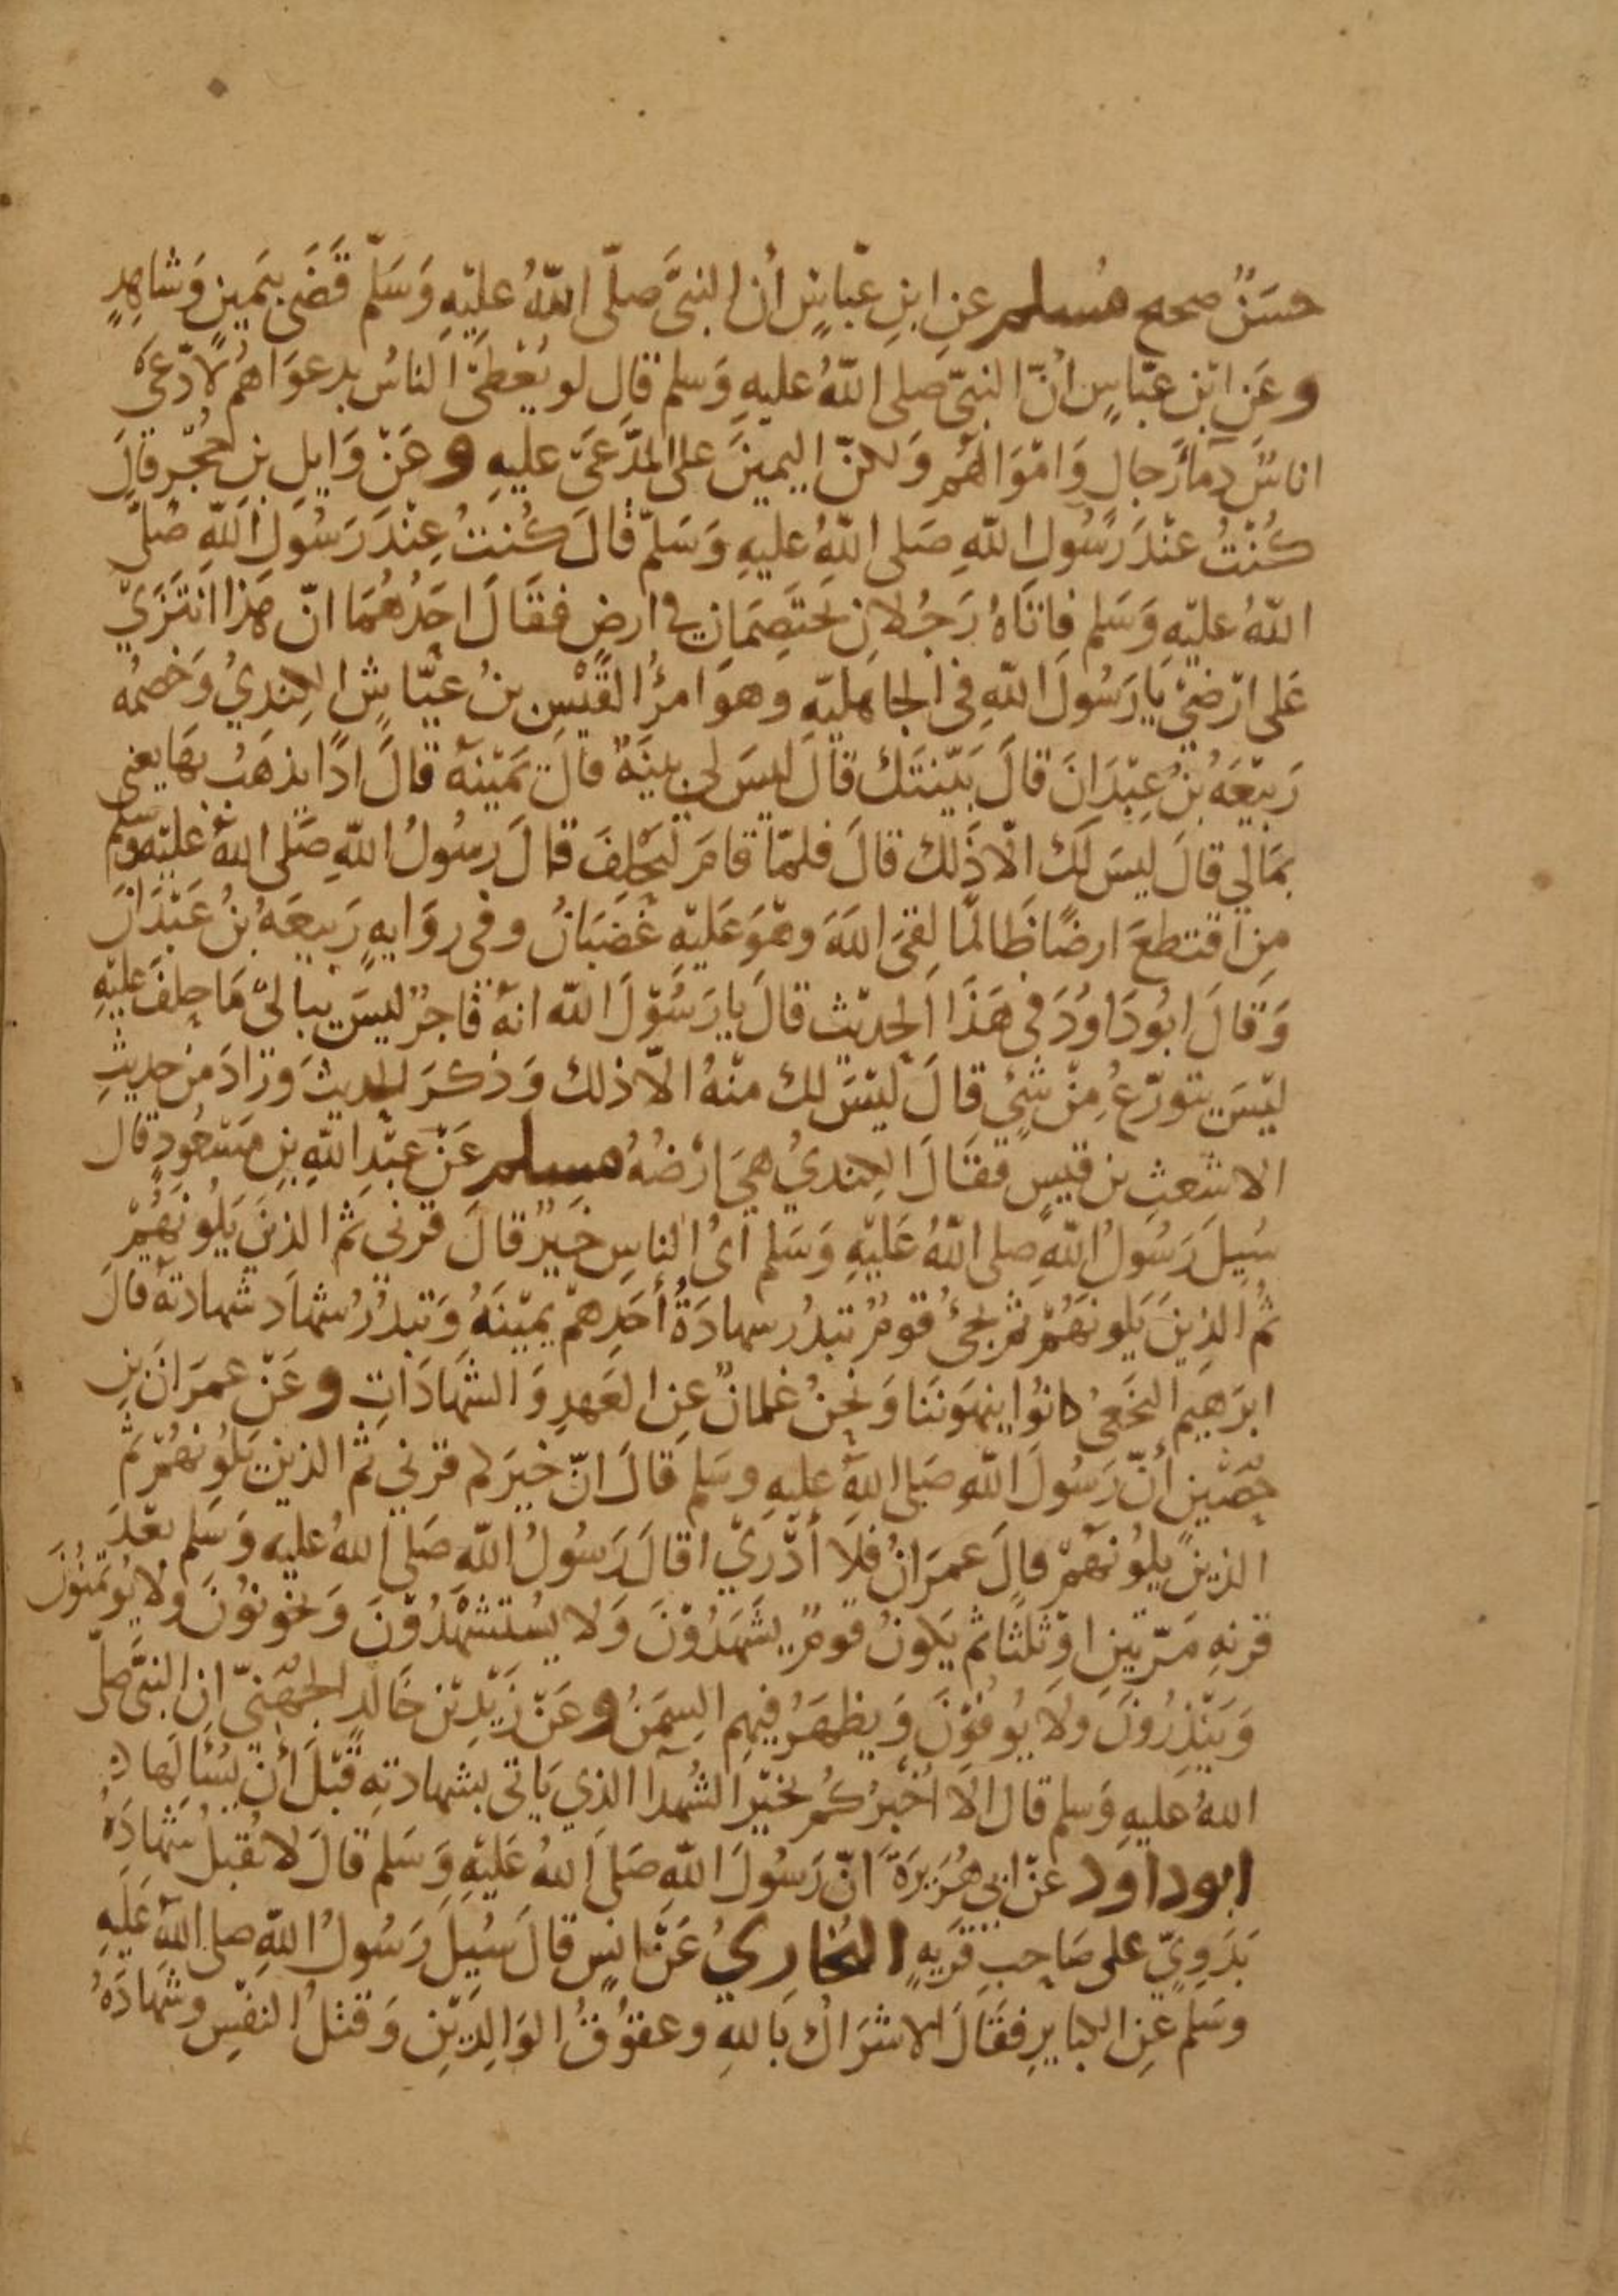 حسَنٌ صحيح مُسلم عنِ ابنِ عبّاسٍ أن النبيَّ صلّى اللّهُ عليْهِ وَسَلّم قَضَى بيَمينٍ وَشاهِدٍ
وعَن ابْن عبّاسٍ أنّ النبيّ صلى اللّهُ عليهِ وَسلم قال لو يُعْطَى الناسُ بدعوَاهُم لادّعَى
اناسٌ دمآ رَجالٍ وَامْوَالَهُم وَلكنّ اليمينَ على المدَّعَى عليهِ وعَنْ وَايلِ بنِ حُجْرٍ قالَ
كُنْتُ عنْدَ رَسُولِ اللّهِ صَلى اللّهُ عليهِ وَسَلّم قالَ كُنتُ عِنْدَ رَسُولِ اللّهِ صَلّى
اللّهُ عليْهِ وَسَلم فاتَاهُ رَجُلانِ يَختَصِمَانِ في ارضٍ فقَالَ احَدُهُمَا انّ هَذا انْتَزَى
عَلى ارْضِيْ يَا رَسُولَ اللّهِ فى الجاهليّهِ وهوَ امرُؤُ القَيْسِ بنُ عيّاشٍ الكِنديُ وَخصْمُه
رَبيْعَهُ بْنُ عِبْدَانَ قالَ بَيّنتَك قالَ ليسَ لي بينَهٌ قال يَميْنهُ قالَ اذًا يذهَبُ بهَا يعني
بمَالي قالَ ليسَ لكَ الّا ذَلك قالَ فلمّا قامَ ليَحْلِفَ قالَ رسُولُ اللّهِ صَلى اللهُ عليْهِ وسلم
مِن اقتطعَ ارضًا ظَالمًا لقيَ اللهَ وهْوَ عَليْهِ غَضبَانُ وفى روَايهٍ رَبيعَهُ بنُ عَبْدَانَ
وَقالَ ابُودَاودَ فى هَذَا الحديْث قالَ يا رَسُوْلَ اللّه انهُ فَاجرٌ ليسَ يبالىْ مَا حلفَ عليْهِ
ليْسَ يتورّعُ مِنْ شَيْءٍ قالَ ليْسَ لك منْهُ الّا ذلك وَذكرَ الحديثَ وزادَ من حديثِ
الاشعثِ بن قيسٍ فقَالَ الكنديُ هيَ ارْضُهُ مسلم عَنْ عبْدِ اللّهِ بنِ مَسْعُودٍ قال
سُيلَ رَسُولُ اللّهِ صلى اللّهُ عَليْهِ وَسَلم أىُ الناسِ خَيرٌ قالَ قرْني ثم الذينَ يَلُونَهُمْ
ثم الذِينَ يَلونَهُمْ ثم يجئُ قومٌ تبدُر سهادَةُ أحَدِهمْ يميْنَهُ وَتبدُرُ شهادَ شهادتهُ قالَ
ابرَهيم النخَعىُ كانُوا ينهَونَنَا وَنحنُ غلمانٌ عنِ العَهدِ وَالشهَادَاتِ وعَنْ عمرَانَ بن
حصَينٍ أنّ رَسُولَ اللّهِ صَلى اللهُ عليهِ وسَلم قَالَ انّ خيرَكم قرْني ثم الذين يَلُونَهُمْ ثم
الذينَ يلُونَهُمْ قالَ عمرَانُ فلَا أدْرِيْ اقالَ رَسُولُ اللّهِ صَلى اللهُ عليهِ وَسَلم بعْدَ
قرنهِ مَرّتينِ اوْ ثلثًا ثم يَكونُ قومٌ يشَهَدُوْنَ وَلا يسُتَشْهَدُوْنَ وَيخونوُنَ ولا يُوتَمنُونَ
وَيَنْذِرُونَ وَلَا يُوفُوْنَ وَيظهَرُ فيهِم السِمَنُ وعَنْ زَيْدِ بْنِ خَالدٍ الجهَنيّ ان النبيَّ صلّى
اللهُ عليهِ وَسلم قال الَا اخْبرُكُم بخيْرِ الشُهدآ الذي يَاتى بشهادتهِ قَبْلَ أنْ يسُئالَها
ابوداود عَنْ ابى هُرَيرَةَ انّ رَسُولَ اللّهِ صَلى اللهُ عَليْهِ وَسَلم قالَ لا تُقبلُ شَهادَهُ
بَدَوِيٍّ على صَاحِبِ قَريهٍ البُخَاريُ عَنْ انسٍ قالَ سُيِلَ رَسُولُ اللّهِ صلى اللهُ عَليهِ
وسَلم عنِ الكبايرِ فقَالَ الاشرَاكُ بَاللهِ وعقوُقُ الوَالِدَيْنِ وَقتلُ النفْسِ وشهادَهُ